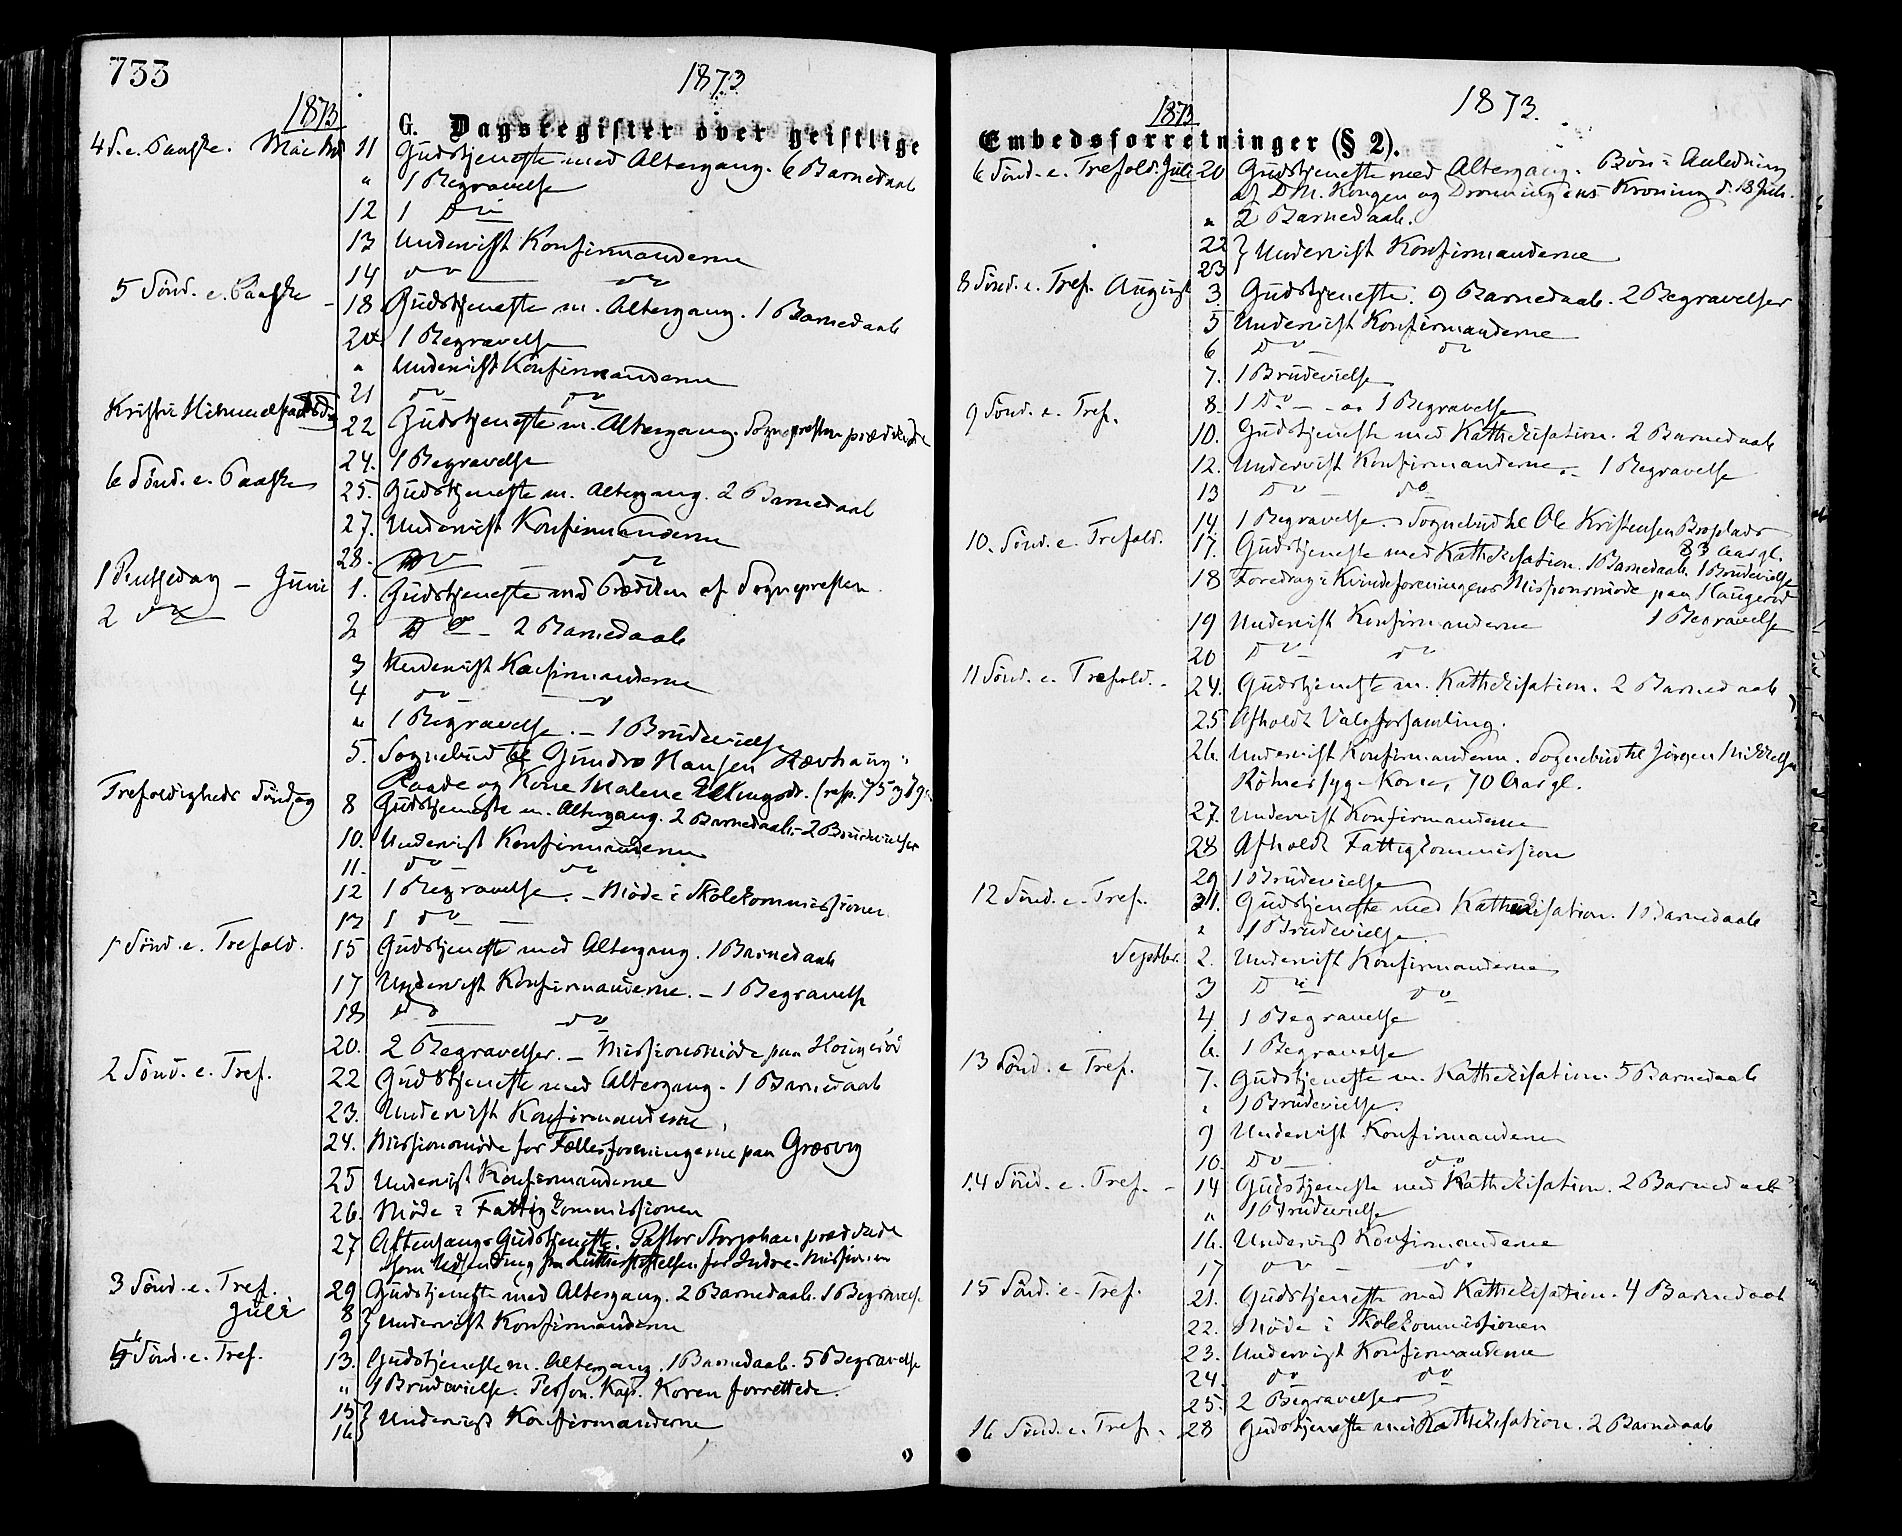 733
1873
1873
G. Dagsregister over geistlige
4 S. e. Paaske. Mai 11 Gudstjeneste med Altergang. 6 Barnedaab
" 1 Begravelse
12 1 Do
13 Undervist Konfirmanderne
14 do do
5 Sönd. e. Paaske – 18 Gudstjeneste m. Altergang. 1 Barnedaab
20 1 Begravelse
" Undervist Konfirmanderne
21 do do
Kristi Himmelfartsdag 22 Gudstjeneste m. Altergang. Sognepresten prædikede
24. 1 Begravelse
6 Sönd. e. Paaske 25. Gudstjeneste m. Altergang. 2 Barnedaab
27. Undervist Konfirmanderne
28. Do – do
1 Pintsedag – Juni 1. Gudstjeneste med Prædiken af Sognepresten.
2 do 2 Do – 2 Barnedaab
3 Undervist Konfirmanderne
4 do – do
" 1 Begravelse. – 1 Brudevielse
5. Sognebud til Gundro Hansen Rævhaug i
Raade og Kone Malene (resp. 75 og 79
Trefoldigheds Söndag 8 Gudstjeneste m. Altergang. 2 Barnedaab – 2 Brudevielser
10. Undervist Konfirmanderne
11. do do
12 1 Begravelse. – Möde i Skolekommissionen
13 1 do –
1 Sönd. e. Trefold. 15 Gudstjeneste med Altergang. 1 Barnedaab
17 Undervist Konfirmanderne. – 1 Begravelse
18 do do
20. 2 Begravelser. – Missionsmöde paa Haugeröd
2 Sönd. e. Tref. 22 Gudstjeneste med Altergang. 1 Barnedaab
23. Undervist Konfirmanderne,
24. Missionsmöde for Fællesforeningerne paa Græsvig
25 Undervist Konfirmanderne
26. Möde i Fattigkommissionen
27 Aftensangs Gudstjeneste. Pastor Storjohan prædikede
som Udsending fra Lutherstiftelsen for Indre-Missionen
3 Sönd. e. Tref. 29 Gudstjeneste med Altergang. 2 Barnedaab. 1 Begravels.
Juli 8 } Undervist Konfirmanderne
9
5 Sönd. e. Tref. 13. Gudstjeneste m. Altergang. 1 Barnedaab. 5 Begravelse
" 1 Brudevielse. Person. Kap. Koren forrettede.
15 } Undervist Konfirmanderne
16
1873
1873.
Embedsforretninger (§ 2).
6 Sönd. e. Trefold. Juli 20 Gudstjeneste med Altergang. Bön i Anledning
af D. M. Kongen og Dronningens Kroning d. 18 Juli.
" 2 Barnedaab.
22 } Undervist Konfirmanderne
23
8 Sönd. e. Tref. August 3. Gudstjeneste. 9 Barnedaab. 2 Begravelser
5 Undervist Konfirmanderne
6 Do – do
7. 1 Brudevielse
8. 1 Do – – 1 Begravelse
9 Sönd. e. Tref. 10. Gudstjeneste med Kathekisation. 2 Barnedaab
12. Undervist Konfirmanderne. – 1 Begravelse
13 Do – do
14 1 Begravelse. Sognebud til Ole Kristensen Broplads
83 Aar gl.
10. Sönd. e. Trefold. 17. Gudstjeneste med Kathekisation. 1 Barnedaab. 1 Brudevielse
18 Foredrag i Kvindeforeningens Missionsmöde paa Haugeröd
1 Begravelse
19 Undervist Konfirmanderne
20 Do – do
11 Sönd. e. Trefold. – 24. Gudstjeneste m. Kathekisation. 2 Barnedaab
25 Afholdt Valgforsamling.
26. Undervist Konfirmanderne. Sognebud til Jörgen Mikkelsen
Kone, 70 Aar gl.
27. Undervist Konfirmanderne
28 Afholdt Fattigkommission
29 1 Brudevielse
12 Sönd. e. Tref. 31. Gudstjeneste med Kathekisation. 1 Barnedaab
" 1 Brudevielse
Septbr. 2. Undervist Konfirmanderne
3 Do do
4. 1 Begravelse
6. 1 Begravelse
13 Sönd. e Tref. 7. Gudstjeneste m. Kathekisation. 5 Barnedaab
" 1 Brudevielse.
9 Undervist Konfirmanderne
10. Do – do
14 Sönd. e. Tref. – 14 Gudstjeneste med Kathekisation. 2 Barnedaab
" 1 Brudevielse
16. Undervist Konfirmanderne
17 do – do
15 Sönd. e. Tref. 21. Gudstjeneste med Kathekisation. 4 Barnedaab
22. Möde i Skolekommissionen
23. Undervist Konfirmanderne
24. do do
25. 2 Begravelser
16 Sönd. e. Tref. 28 Gudstjeneste med Kathekisation. 2 Barnedaab